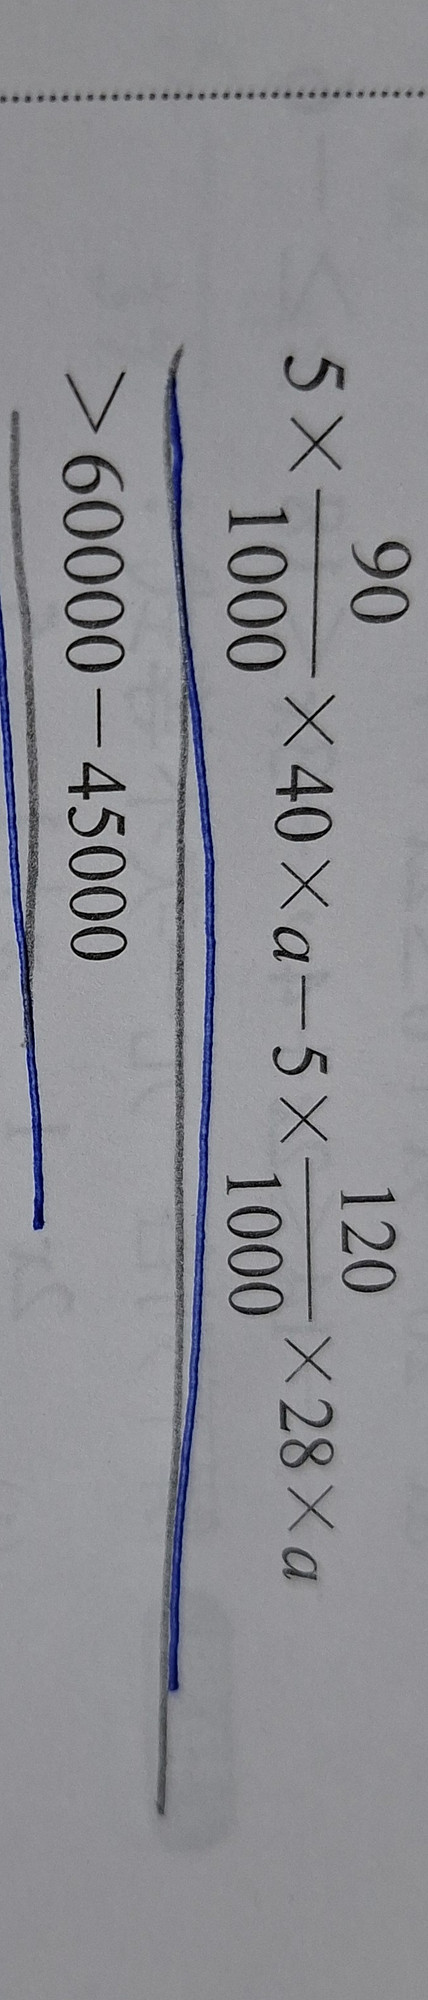 5 × 90/1000 × 40 × a − 5 × 120/1000 × 28 × a
> 60000 − 45000